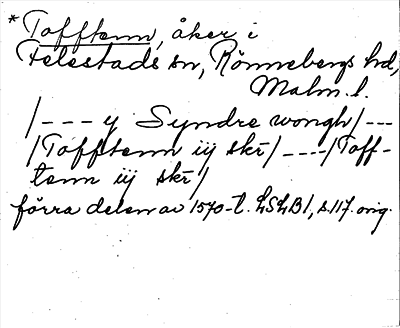 * Tofftenn, åker i
Felestads sn, Rönnebergs hd,
Malm. l.
/--- y Syndre wongh/---
/Tofftenn iij skr/ ---/Toff-
tenn iij skr/
förra delen av 1570-t. LSLB1, s. 117. orig.